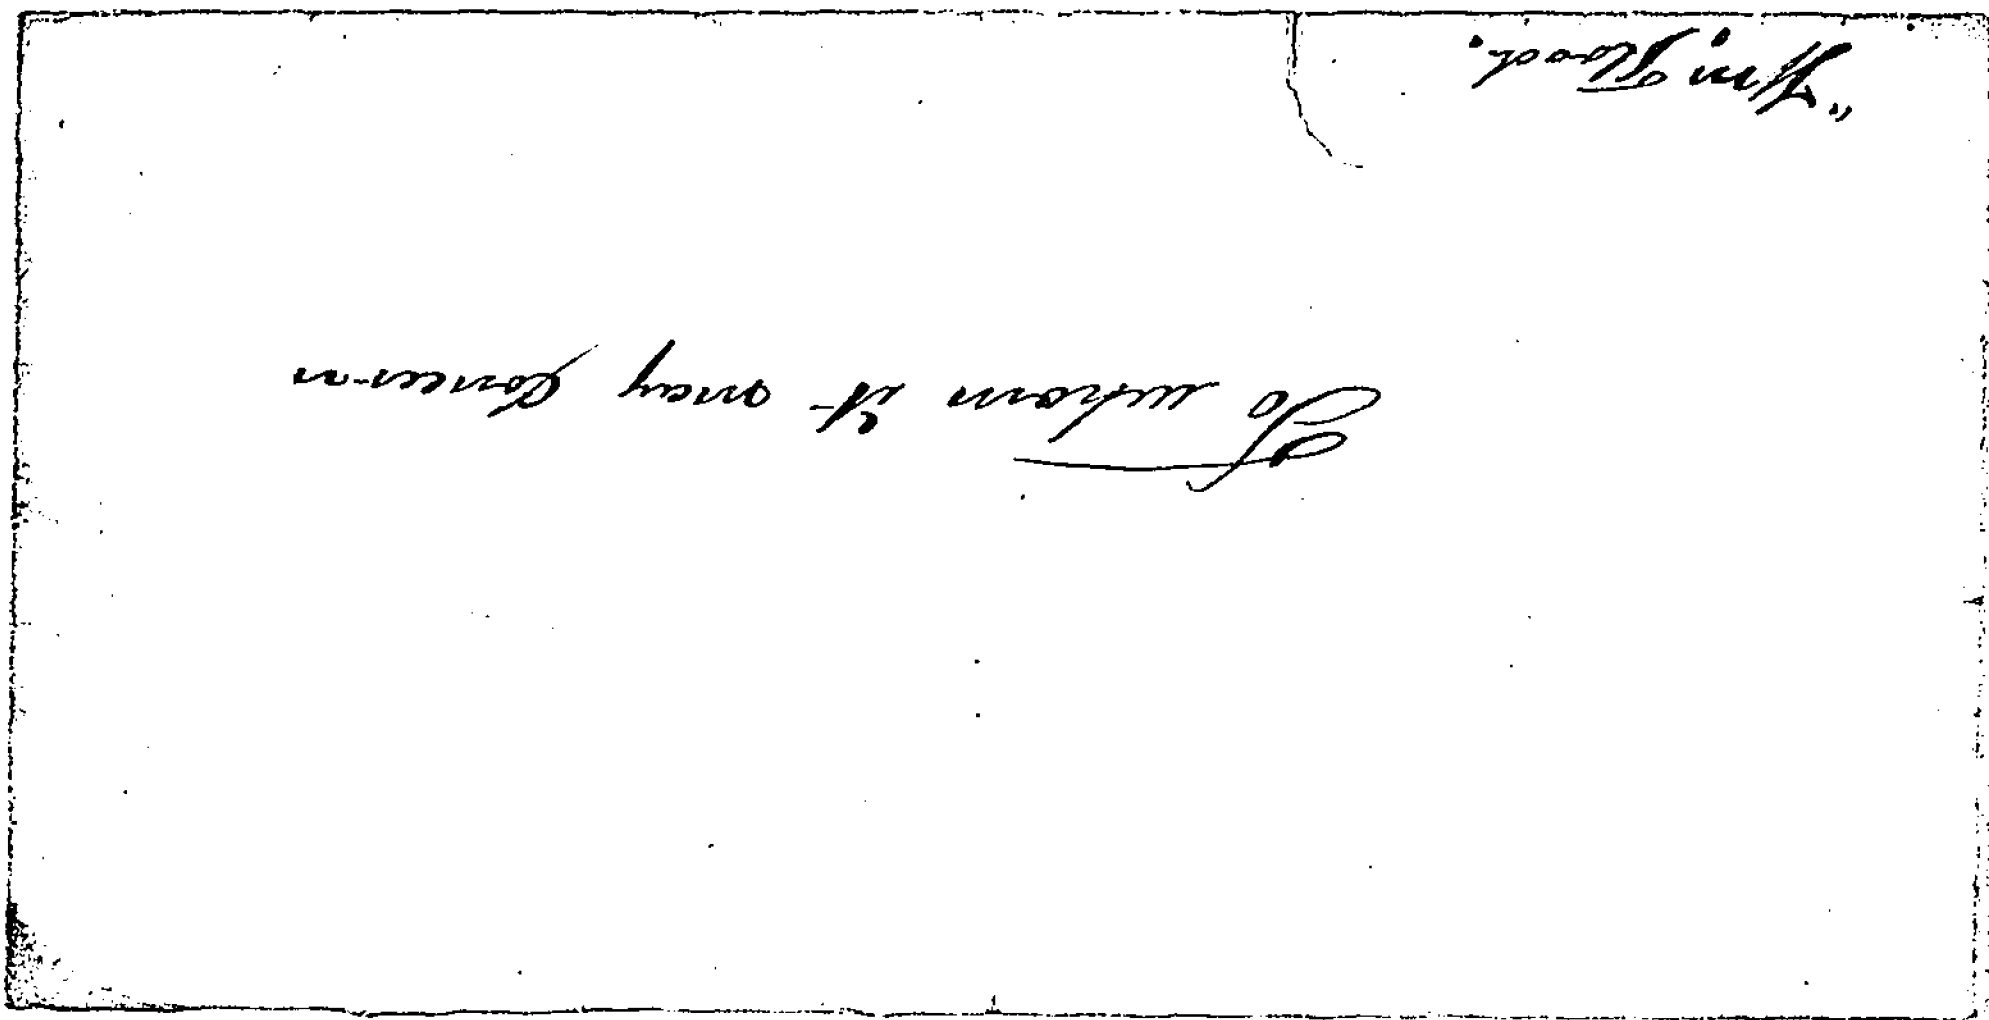 To whom it may Concern
"Wm. Flood.